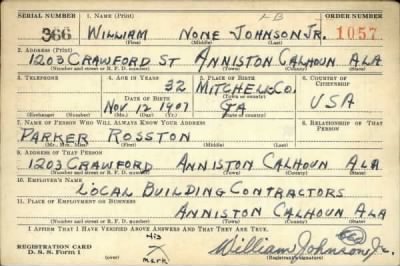 SERIAL NUMBER 1. NAME (Print) LB ORDER NUMBER
366 WILLIAM NONE JOHNSON JR. 1057
(First) (Middle) (Last)
2. ADDRESS (Print)
1203 CRAWFORD ST ANNISTON CALHOUN ALA
(Number and street or R. F. D. number) (Town) (County) (State)
3. TELEPHONE 4. AGE IN YEARS 5. PLACE OF BIRTH 6. COUNTRY OF CITIZENSHIP
32 MITCHELL CO.
DATE OF BIRTH (Town or county) USA
NOV 12 1907 GA
(Exchange) (Number) (Mo.) (Day) (Yr.) (State or country)
7. NAME OF PERSON WHO WILL ALWAYS KNOW YOUR ADDRESS 8. RELATIONSHIP OF THAT PERSON
PARKER ROSSTON
(Mr., Mrs., Miss) (First) (Middle) (Last)
9. ADDRESS OF THAT PERSON
1203 CRAWFORD ANNISTON CALHOUN ALA
(Number and street or R. F. D. number) (Town) (County) (State)
10. EMPLOYER'S NAME
LOCAL BUILDING CONTRACTORS
11. PLACE OF EMPLOYMENT OR BUSINESS
ANNISTON CALHOUN ALA
(Number and street or R. F. D. number) (Town) (County) (State)
I AFFIRM THAT I HAVE VERIFIED ABOVE ANSWERS AND THAT THEY ARE TRUE.
His
REGISTRATION CARD X William Johnson, Jr.
D. S. S. Form 1 mark (Registrant's signature)